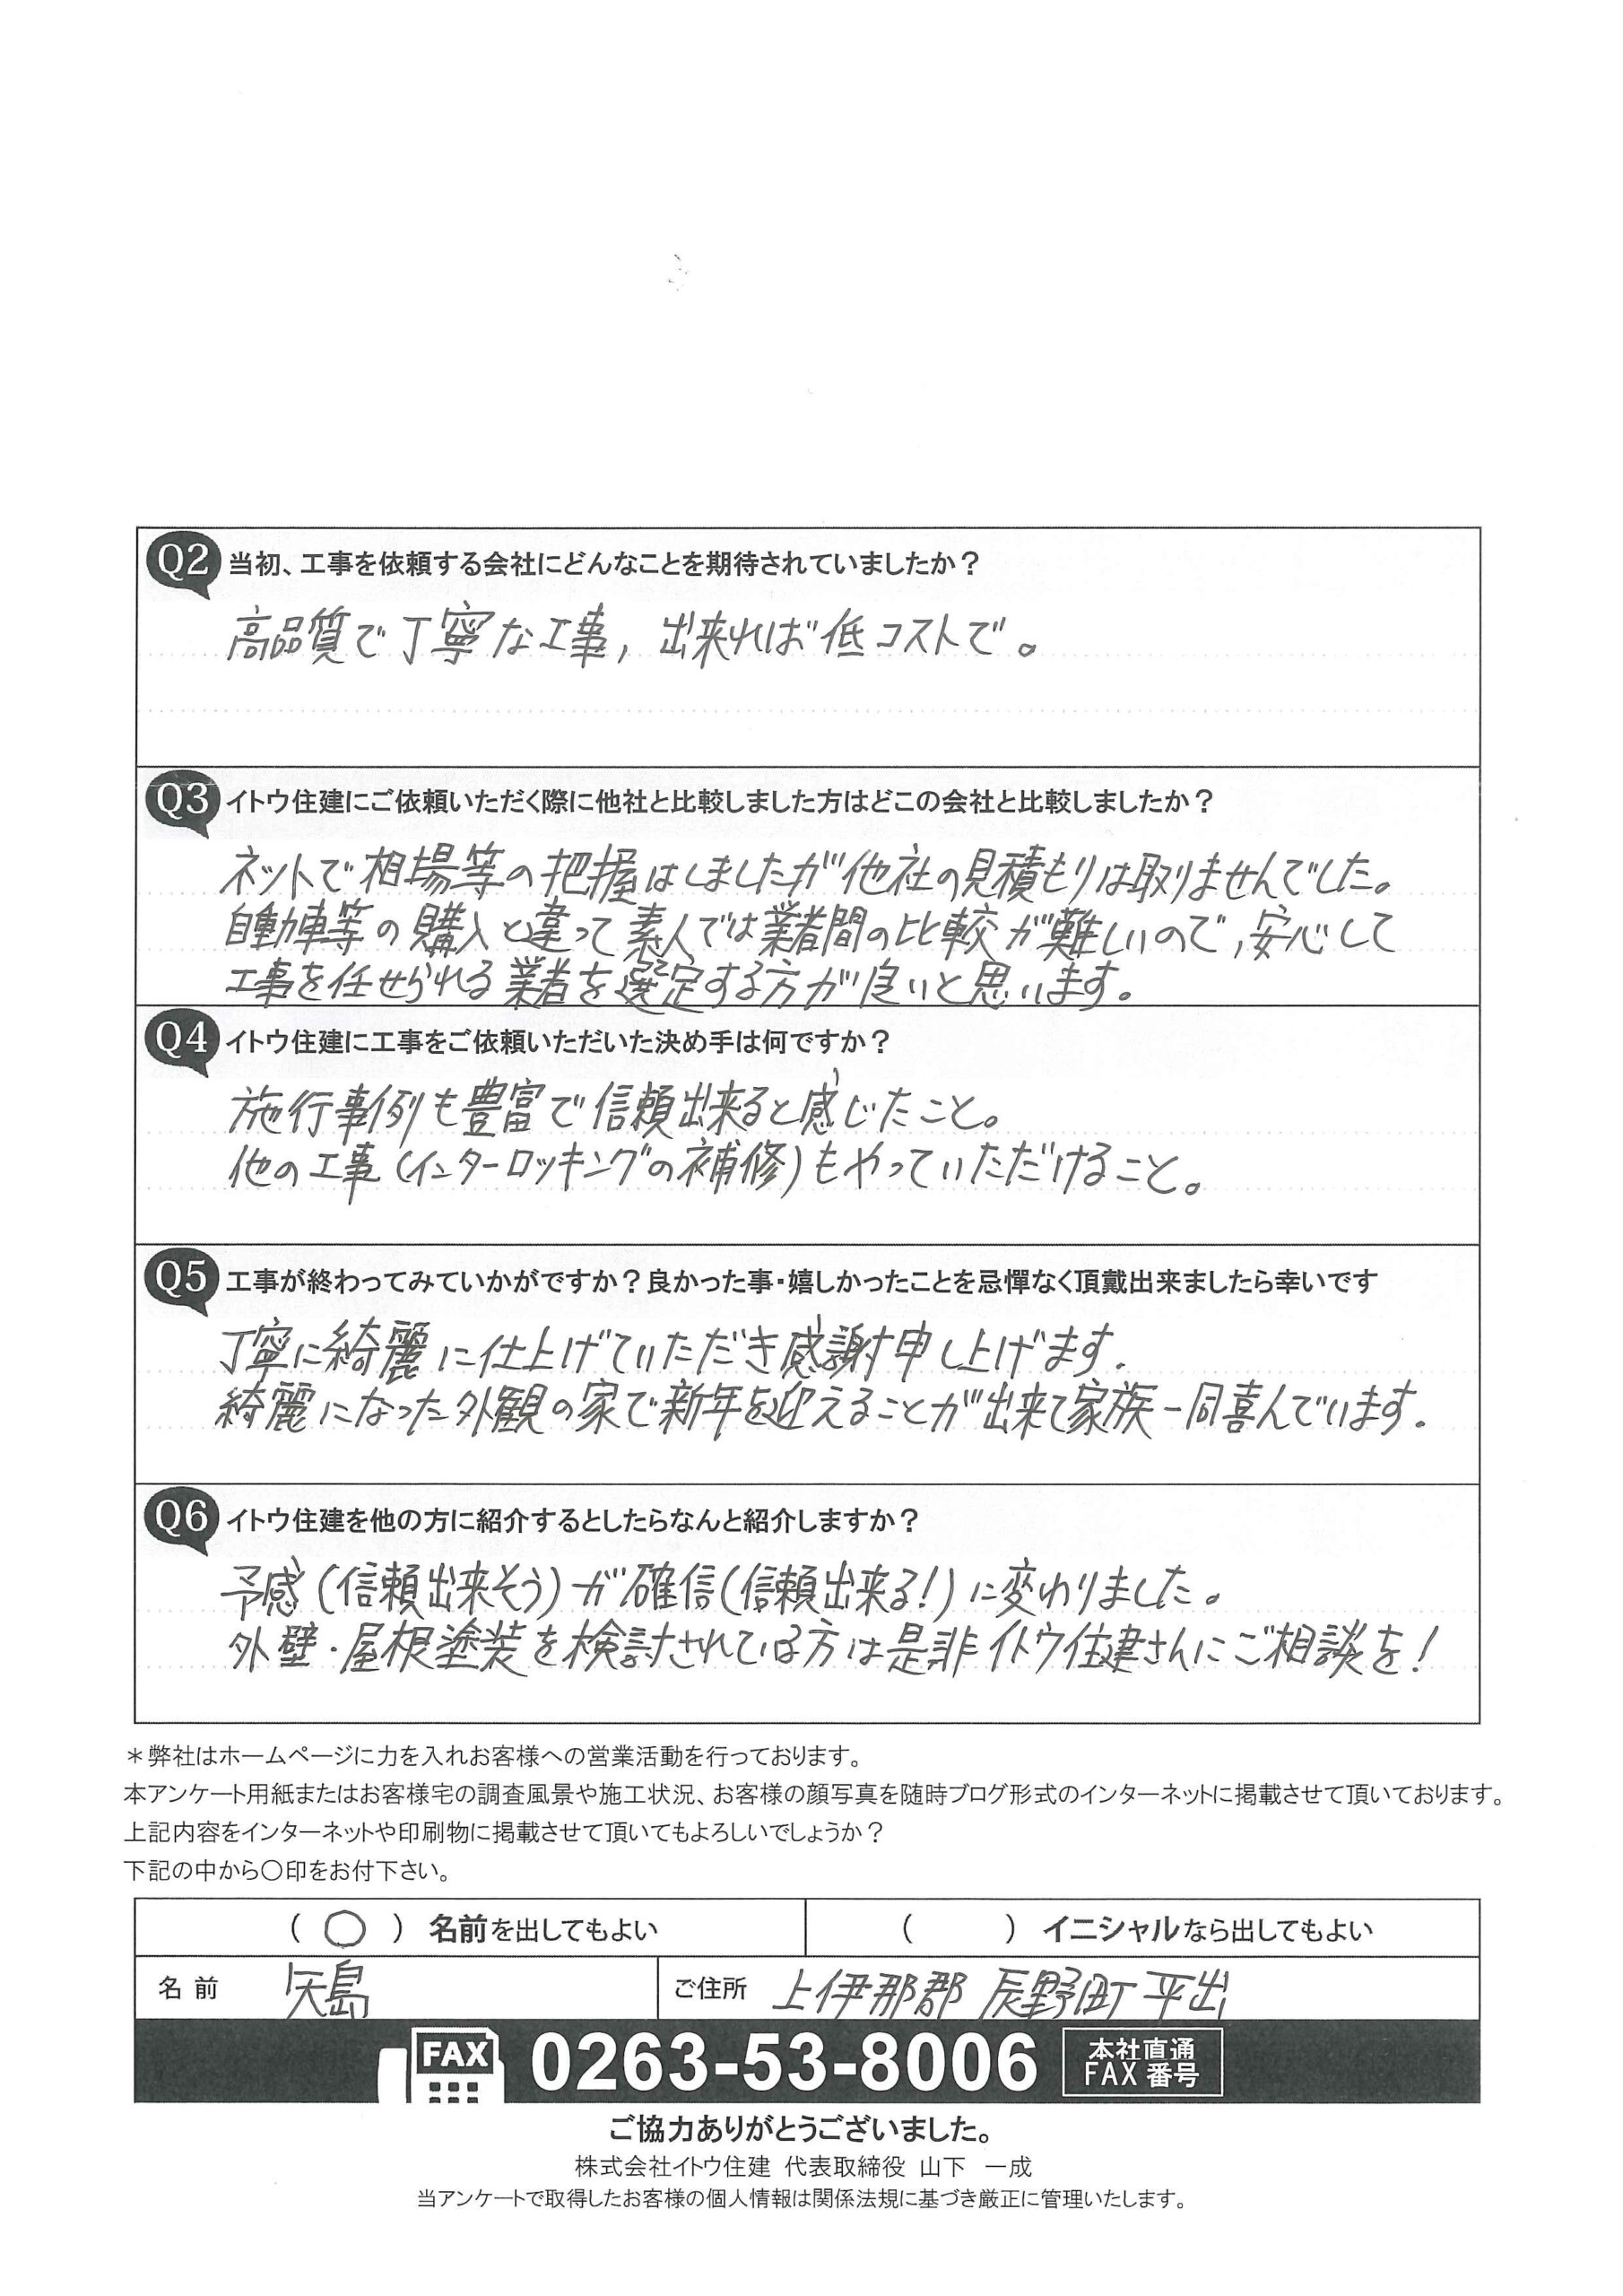 Q2 当初、工事を依頼する会社にどんなことを期待されていましたか？
高品質で丁寧な工事, 出来れば低コストで。
Q3 イトウ住建にご依頼いただく際に他社と比較しました方はどこの会社と比較しましたか？
ネットで相場等の把握はしましたが他社の見積もりは取りませんでした。
自動車等の購入と違って素人では業者間の比較が難しいので,安心して
工事を任せられる業者を選定する方が良いと思います。
Q4 イトウ住建に工事をご依頼いただいた決め手は何ですか？
施行事例も豊富で信頼出来ると感じたこと。
他の工事(インターロッキングの補修)もやっていただけること。
Q5 工事が終わってみていかがですか？良かった事・嬉しかったことを忌憚なく頂戴出来ましたら幸いです
丁寧に綺麗に仕上げていただき感謝申し上げます.
綺麗になった外観の家で新年を迎えることが出来て家族一同喜んでいます.
Q6 イトウ住建を他の方に紹介するとしたらなんと紹介しますか？
予感(信頼出来そう)が確信(信頼出来る!)に変わりました。
外壁・屋根塗装を検討されている方は是非イトウ住建さんにご相談を!
＊弊社はホームページに力を入れお客様への営業活動を行っております。
本アンケート用紙またはお客様宅の調査風景や施工状況、お客様の顔写真を随時ブログ形式のインターネットに掲載させて頂いております。
上記内容をインターネットや印刷物に掲載させて頂いてもよろしいでしょうか？
下記の中から〇印をお付下さい。
（ ○ ）名前を出してもよい （ ）イニシャルなら出してもよい
名 前 矢島 ご住所 上伊那郡 辰野町 平出
FAX 0263-53-8006 本社直通
FAX 番号
ご協力ありがとうございました。
株式会社イトウ住建 代表取締役 山下 一成
当アンケートで取得したお客様の個人情報は関係法規に基づき厳正に管理いたします。